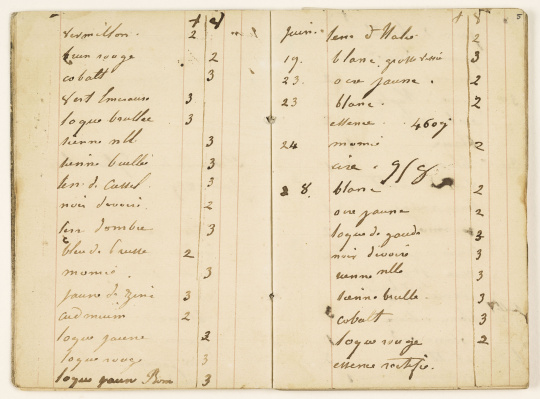 vermillon. 2
brun rouge 2
cobalt 3
vert Emeraude 3
laque brullée 3
sienne nlle 3
sienne brullée 3
terre de Cassel 3
noir d'ivoire. 2
terre d'ombre 3
bleu de Prusse 2
momie. 3
jaune de zinc 3
cadmium 2
laque jaune 2
laque rouge 3
laque jaune 3
5
Juin. terre d'Italie 2
19. blanc. 3
23. ocre jaune. 2
23 blanc. 2
essence.
24 momie 2
cire.
28. blanc 2
ocre jaune 2
laque de gaude 3
noir d'ivoire 3
sienne nlle 3
sienne brulle. 3
cobalt 3
laque rouge 2
essence rectifie.